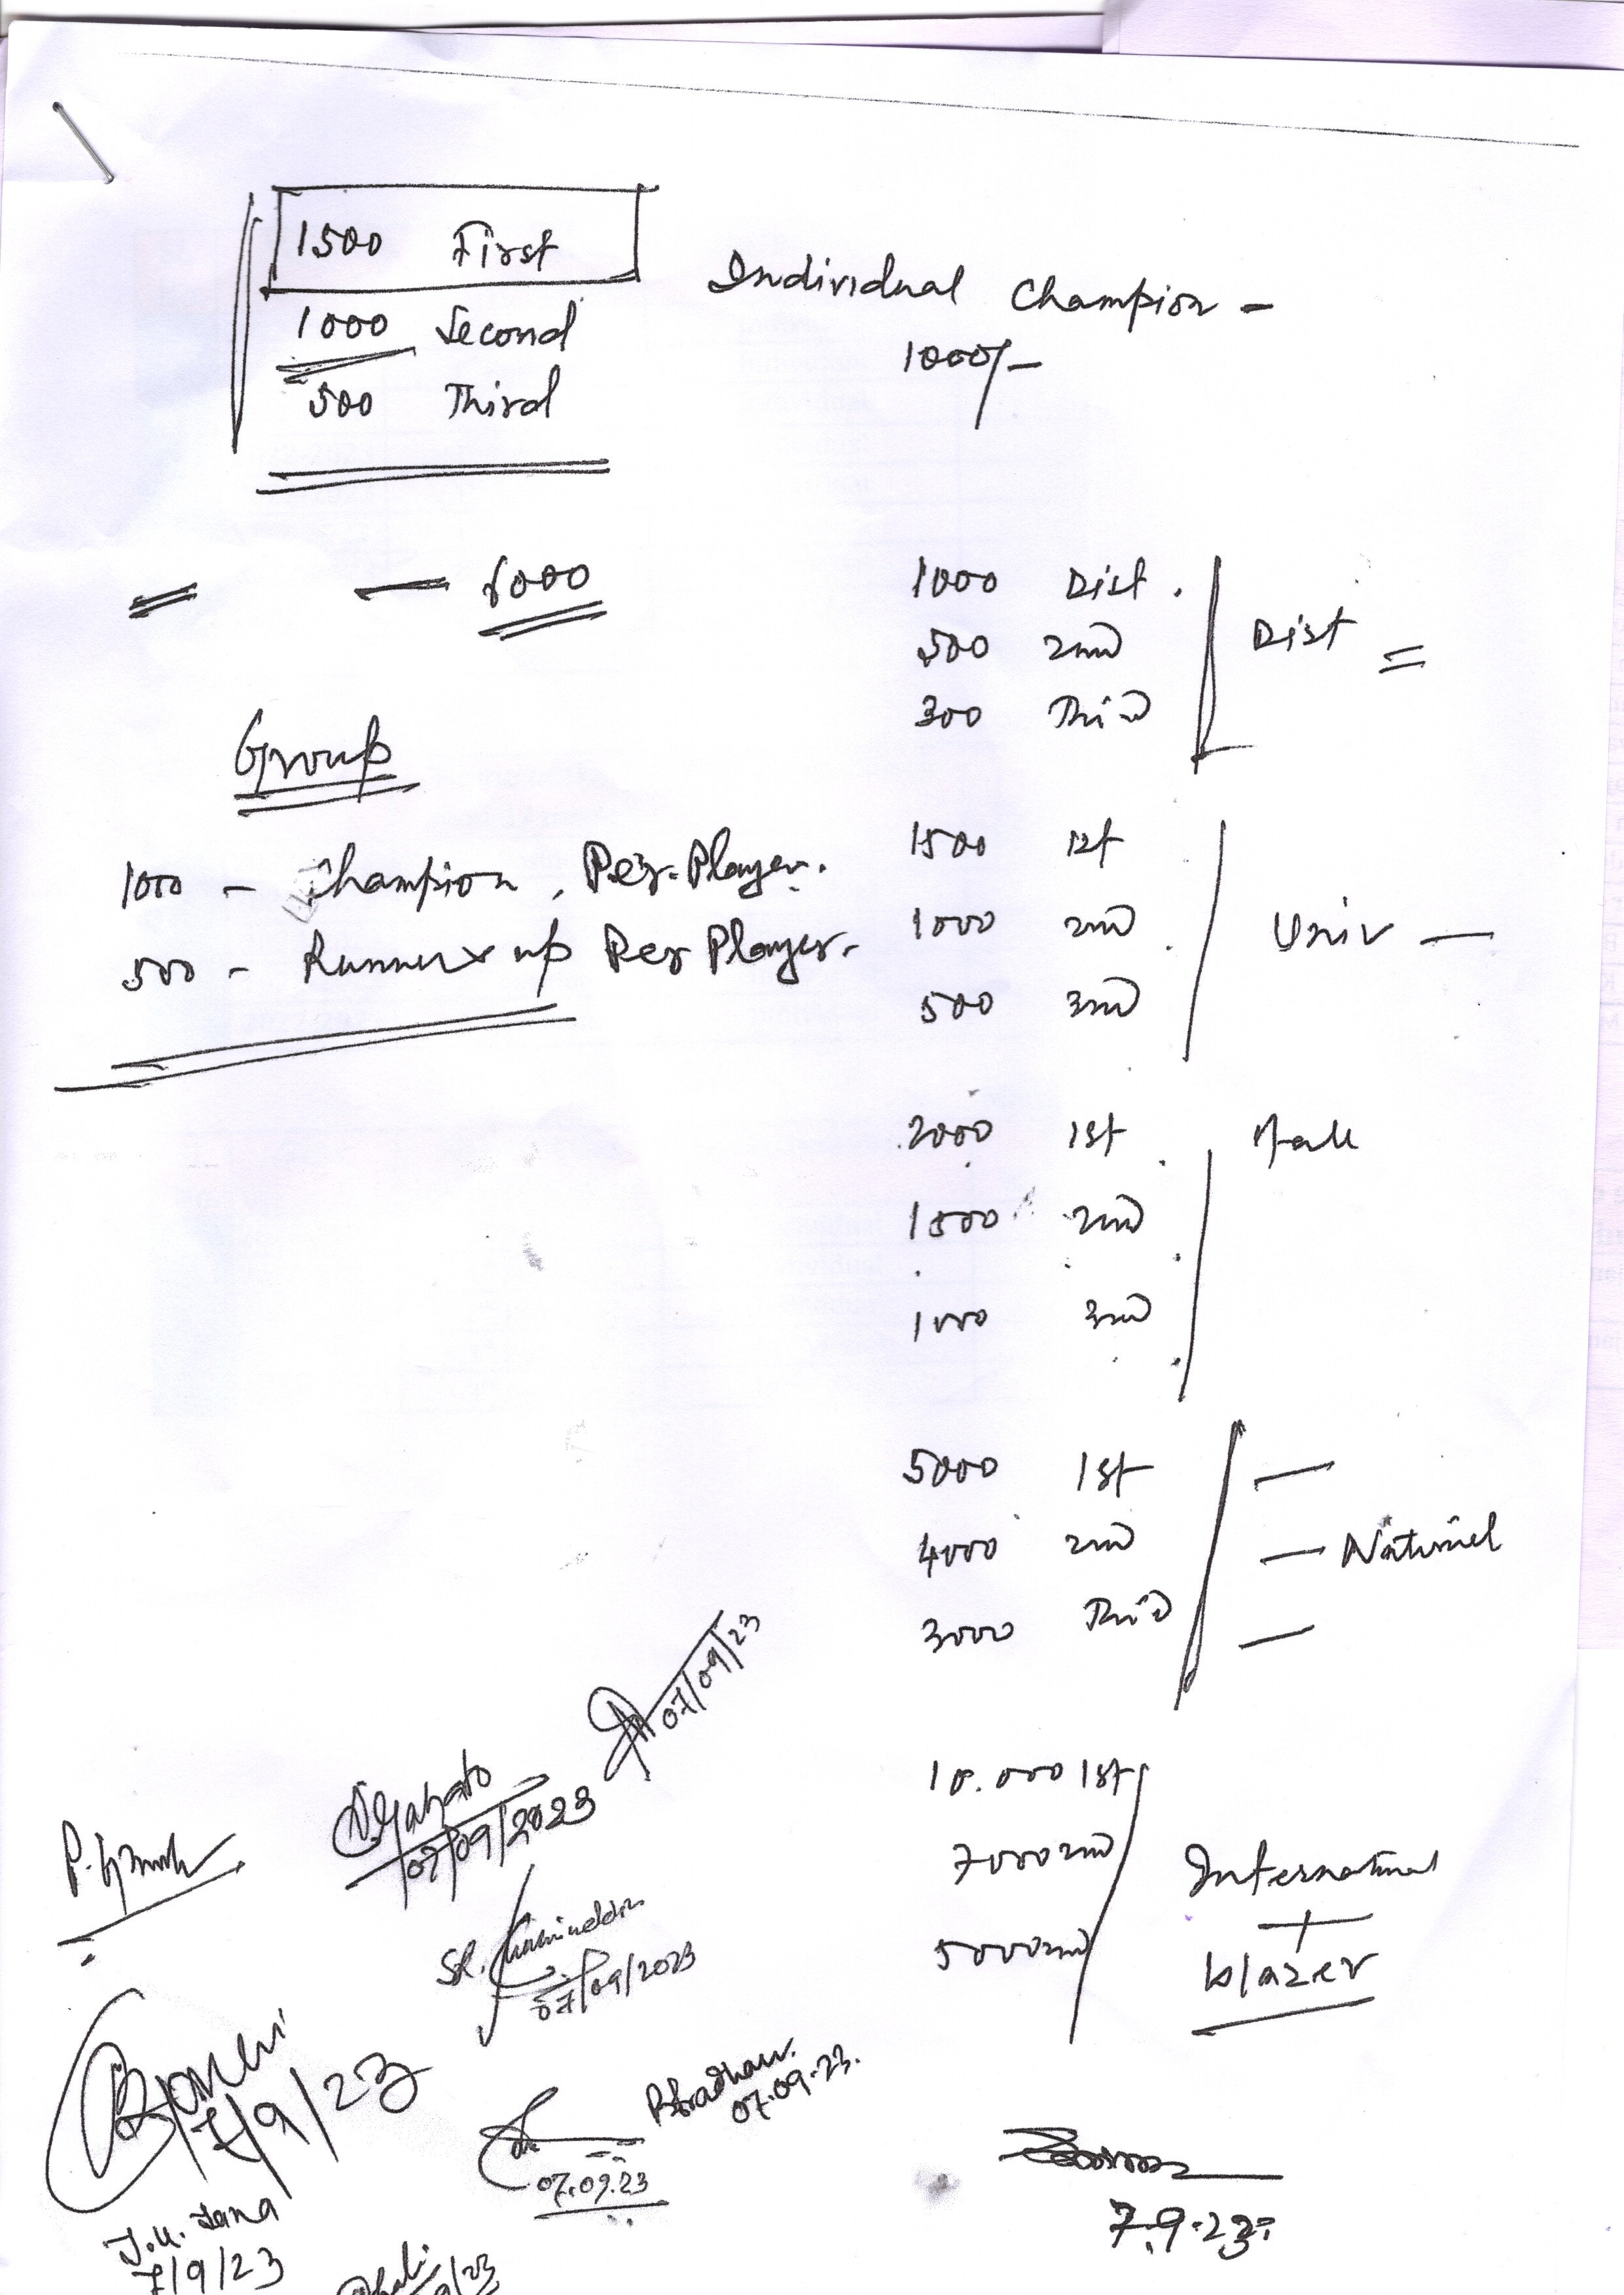 1500 First
1000 Second
500 Third
Individual Champion -
1000/-
= — 6000
Group
1000 - Champion, Per-Player.
500 - Runners up Per Player.
1000 Dist.
500 2nd
300 Third
Dist =
1500 1st
1000 2nd
500 3rd
Univ —
2000 1st
1500 2nd
1000 3rd
5000 1st —
4000 2nd — National
3000 Third —
10.000 1st
7000 2nd
5000 2nd
International
+
blazer
07/09/23
07/09/2023
07/09/2023
7/9/23
Pradhan.
07.09.23.
07.09.23
J.U. Jana
7/9/23
7.9.23